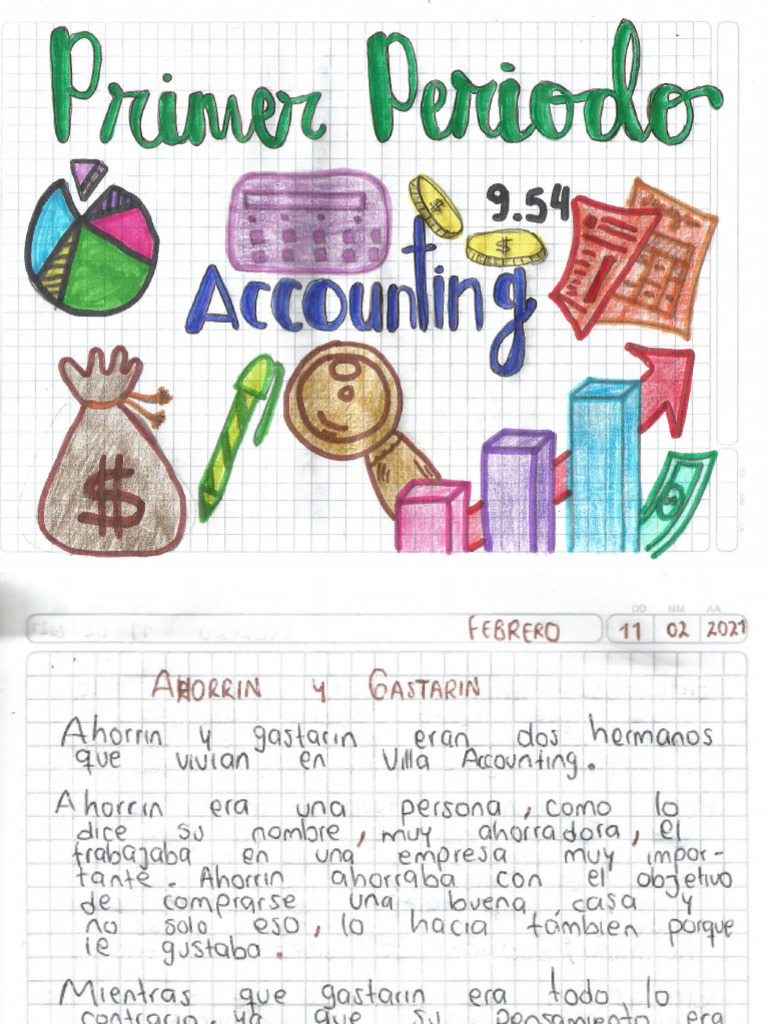 Primer Periodo
9.54
$
$
Accounting
$
$
DD MM AA
FEBRERO 11 02 2021
AHORRIN y GASTARIN
Ahorrin y gastarin eran dos hermanos
que vivian en Villa Accounting.
Ahorrin era una persona, como lo
dice su nombre, muy ahorradora, el
trabajaba en una empresa muy impor-
tante. Ahorrin ahorraba con el objetivo
de comprarse una buena casa y
no solo eso, lo hacia támbien porque
le gustaba.
Mientras que gastarin era todo lo
contrario, ya que su pensamiento era